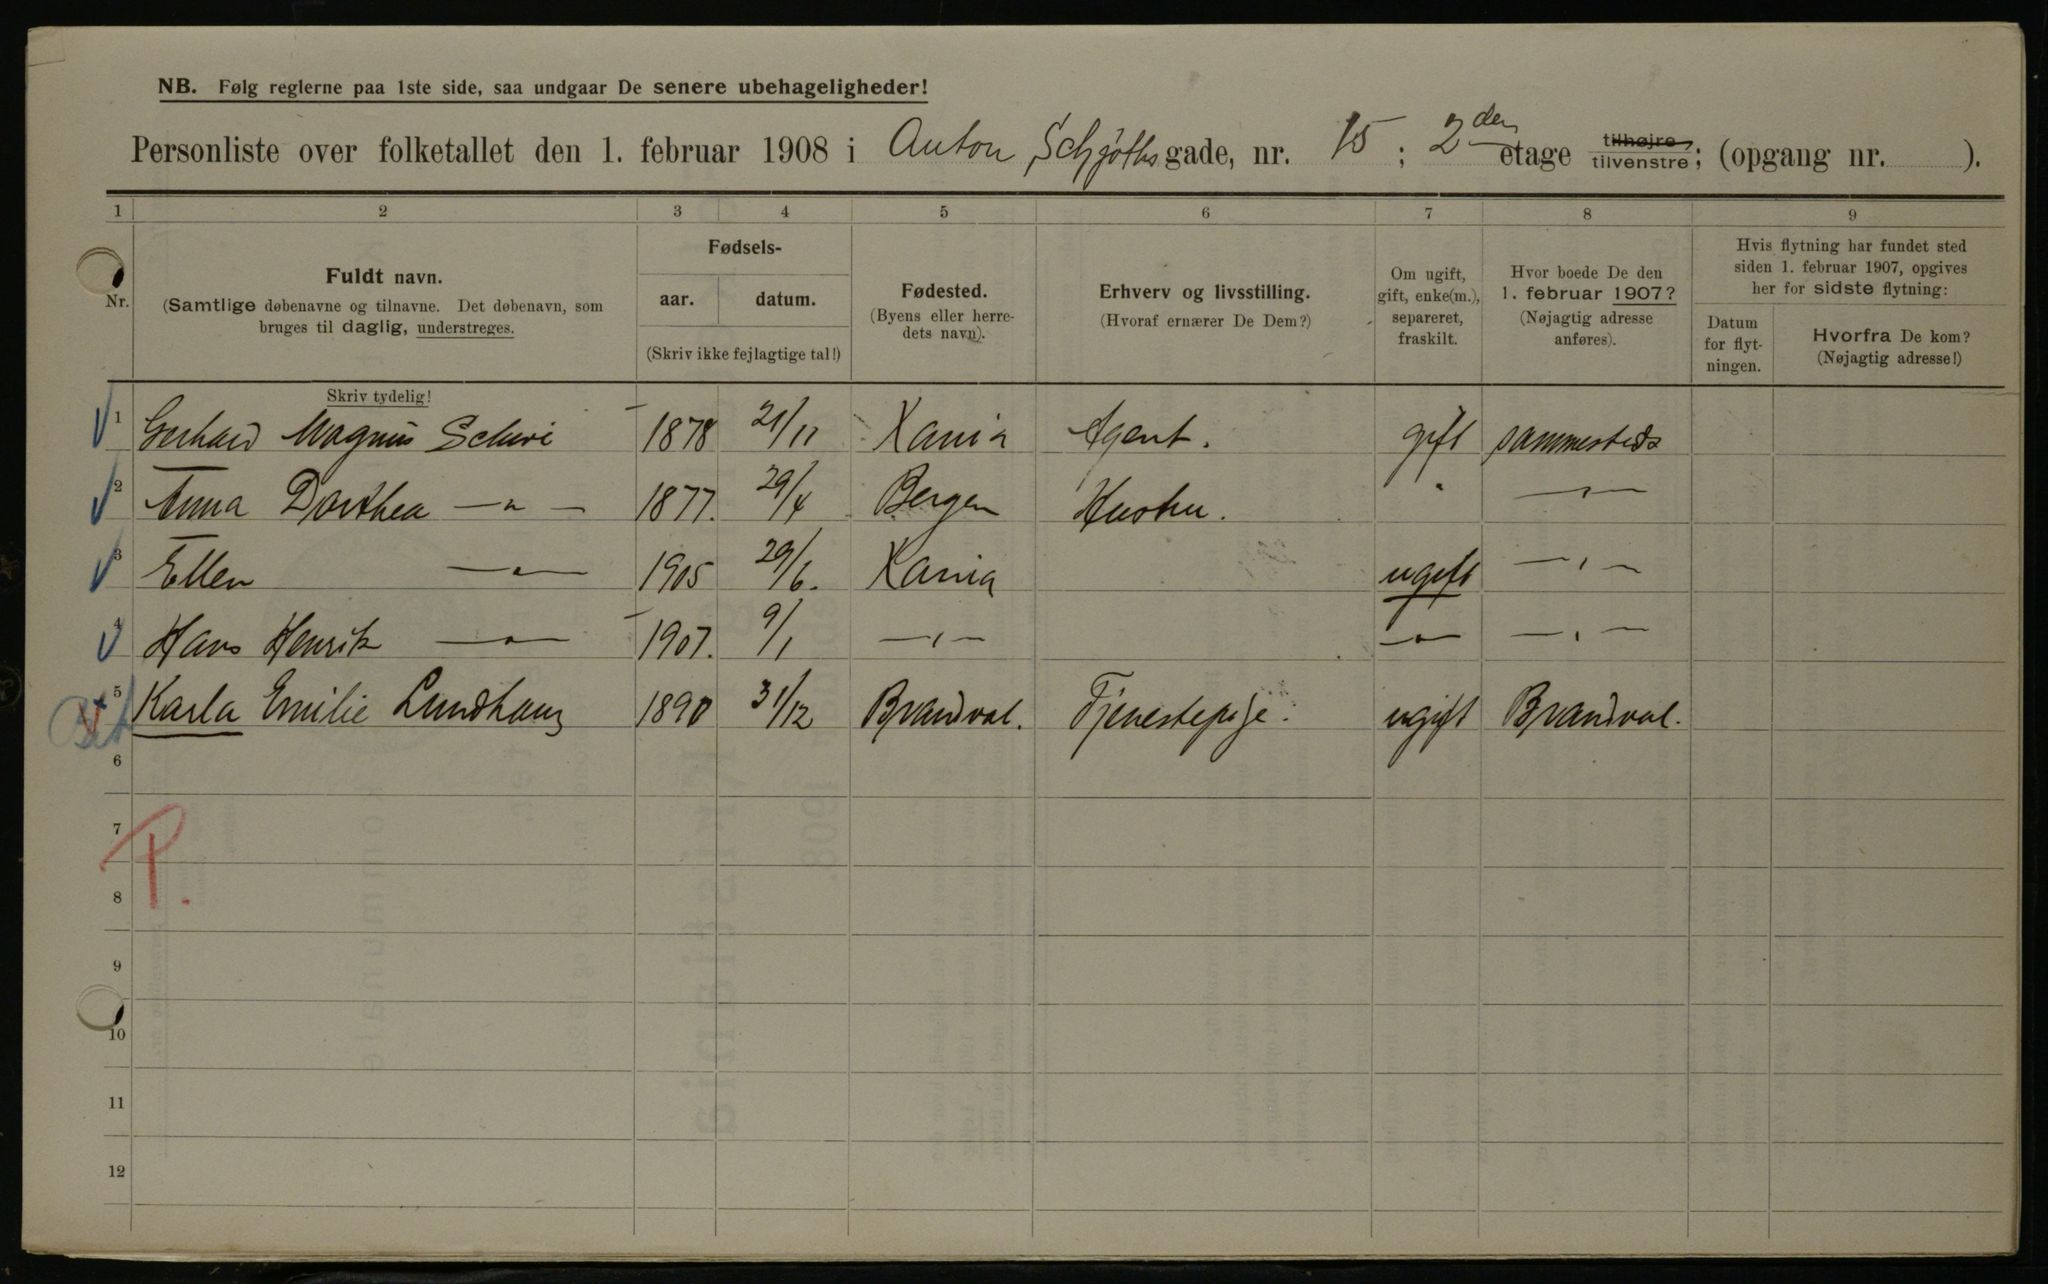 NB. Følg reglerne paa 1ste side, saa undgaar De senere ubehageligheder!
Personliste over folketallet den 1. februar 1908 i Anton Schjøths gade, nr. 15 ; 2den etage tilhøjre tilvenstre; (opgang nr. ).
1 2 3 4 5 6 7 8 9
Nr.
Fuldt navn.
(Samtlige døbenavne og tilnavne. Det døbenavn, som
bruges til daglig, understreges.
Skriv tydelig!
Fødsels-
aar. datum.
(Skriv ikke fejlagtige tal!)
Fødested.
(Byens eller herre-
dets navn).
Erhverv og livsstilling.
(Hvoraf ernærer De Dem?)
Om ugift,
gift, enke(m.),
separeret,
fraskilt.
Hvor boede De den
1. februar 1907?
(Nøjagtig adresse
anføres).
Hvis flytning har fundet sted
siden 1. februar 1907, opgives
her for sidste flytning:
Datum
for flyt-
ningen.
Hvorfra De kom?
(Nøjagtig adresse!)
1 Gerhard Magnus 1878 21/11 Xania Agent. gift sammesteds
2 Anna Dorthea —„— 1877. 29/4 Bergen Hustru. " —„—
3 Ellen —„— 1905 29/6. Xania ugift —„—
4 Hans Henrik —„— 1907. 9/1 —„— —„— —„—
5 Karla Emilie Lundhaug 1890 31/12 Brandval. Tjenestepige. ugift Brandval.
6
7
P.
8
9
10
11
12